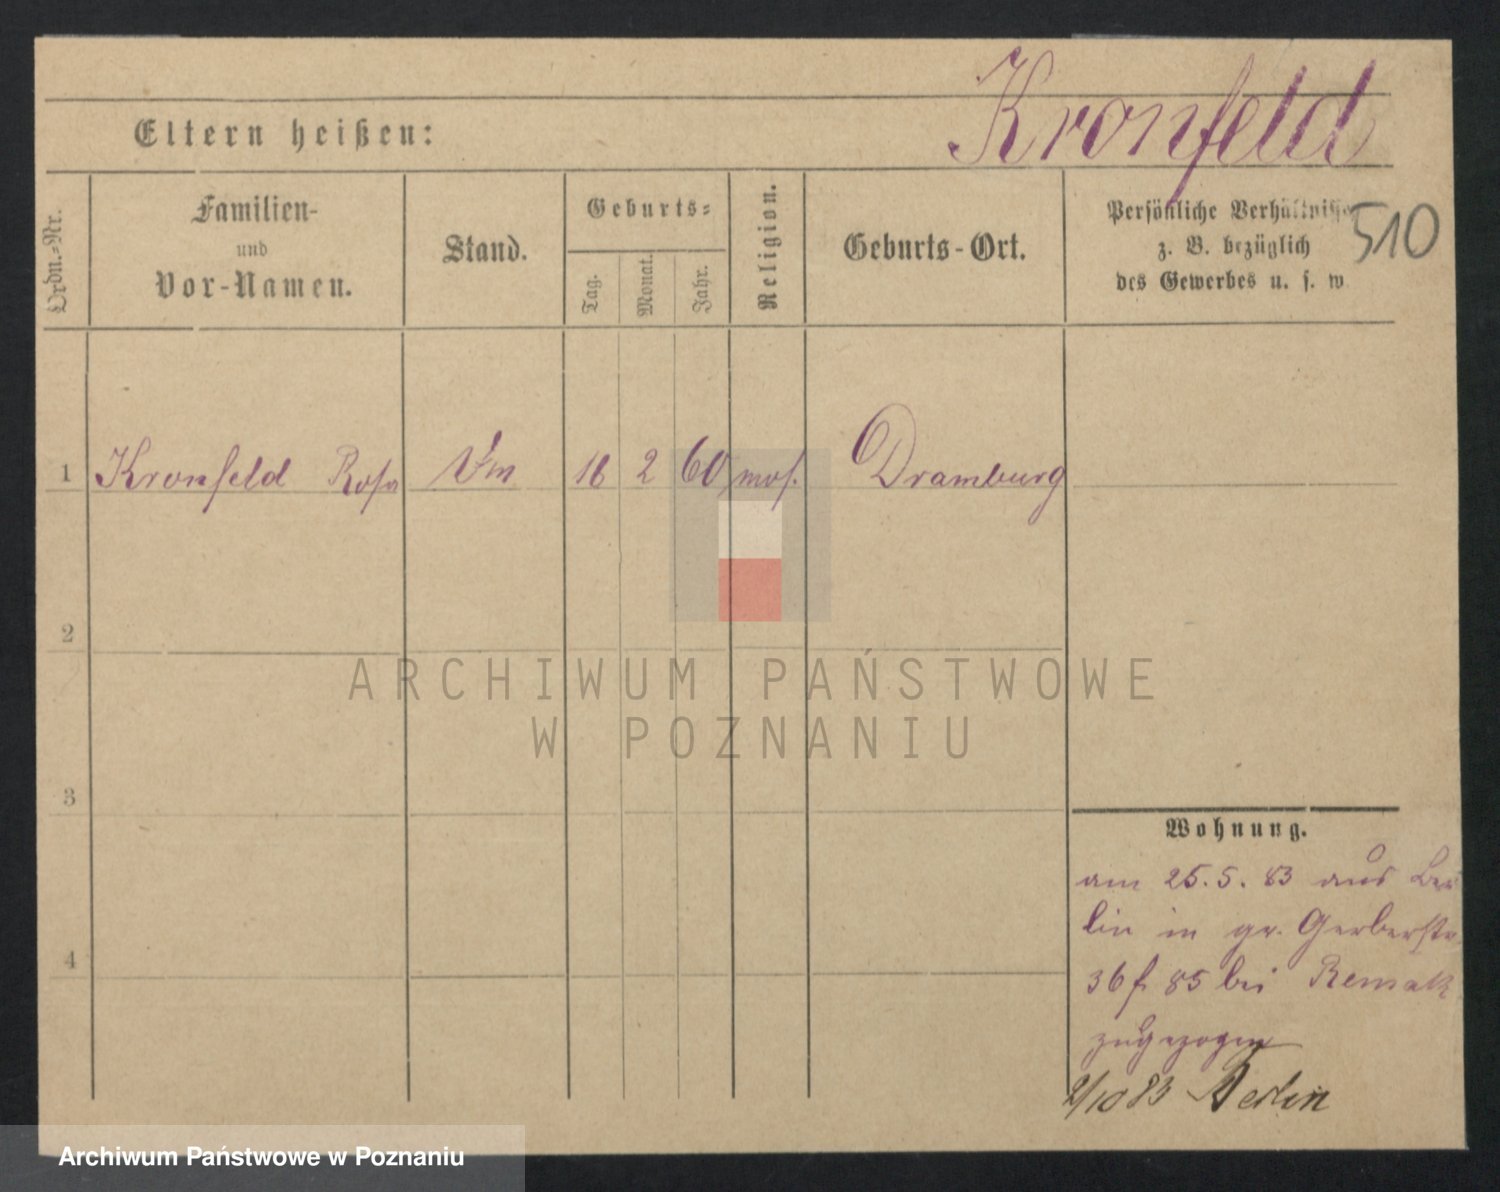 Kronfeld
Eltern heißen:
510
Ordn.-Nr.
Familien-
und
Vor-Namen.
Stand.
Geburts-
Tag.
Monat.
Jahr.
Religion.
Geburts-Ort.
Persönliche Verhältnisse
z. B. bezüglich
des Gewerbes u. s. w
1 Kronfeld Rosa 16 2 60 mos. Dramburg
2
3
4
ARCHIWUM PAŃSTWOWE
W POZNANIU
Wohnung.
am 25. 5. 83 aus Ber
lin in gr. Gerberstr
36 f. 85 bei Remak
zugezogen
2/10 83 Berlin
Archiwum Państwowe w Poznaniu